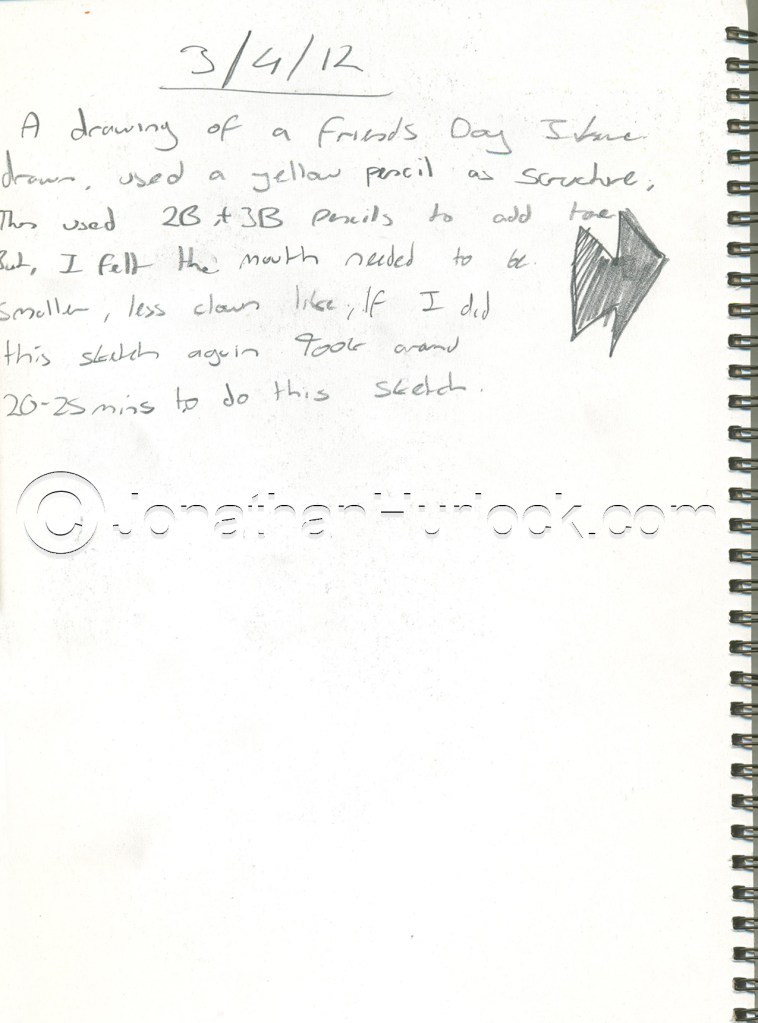 3/4/12
A drawing of a friends Day I have
drawn, used a yellow pencil as structure,
Then used 2B + 3B pencils to add tone
But, I felt the mouth needed to be
smaller, less clown like, If I did
this sketch again Took around
20-25mins to do this sketch.
© JonathanHurlock.com